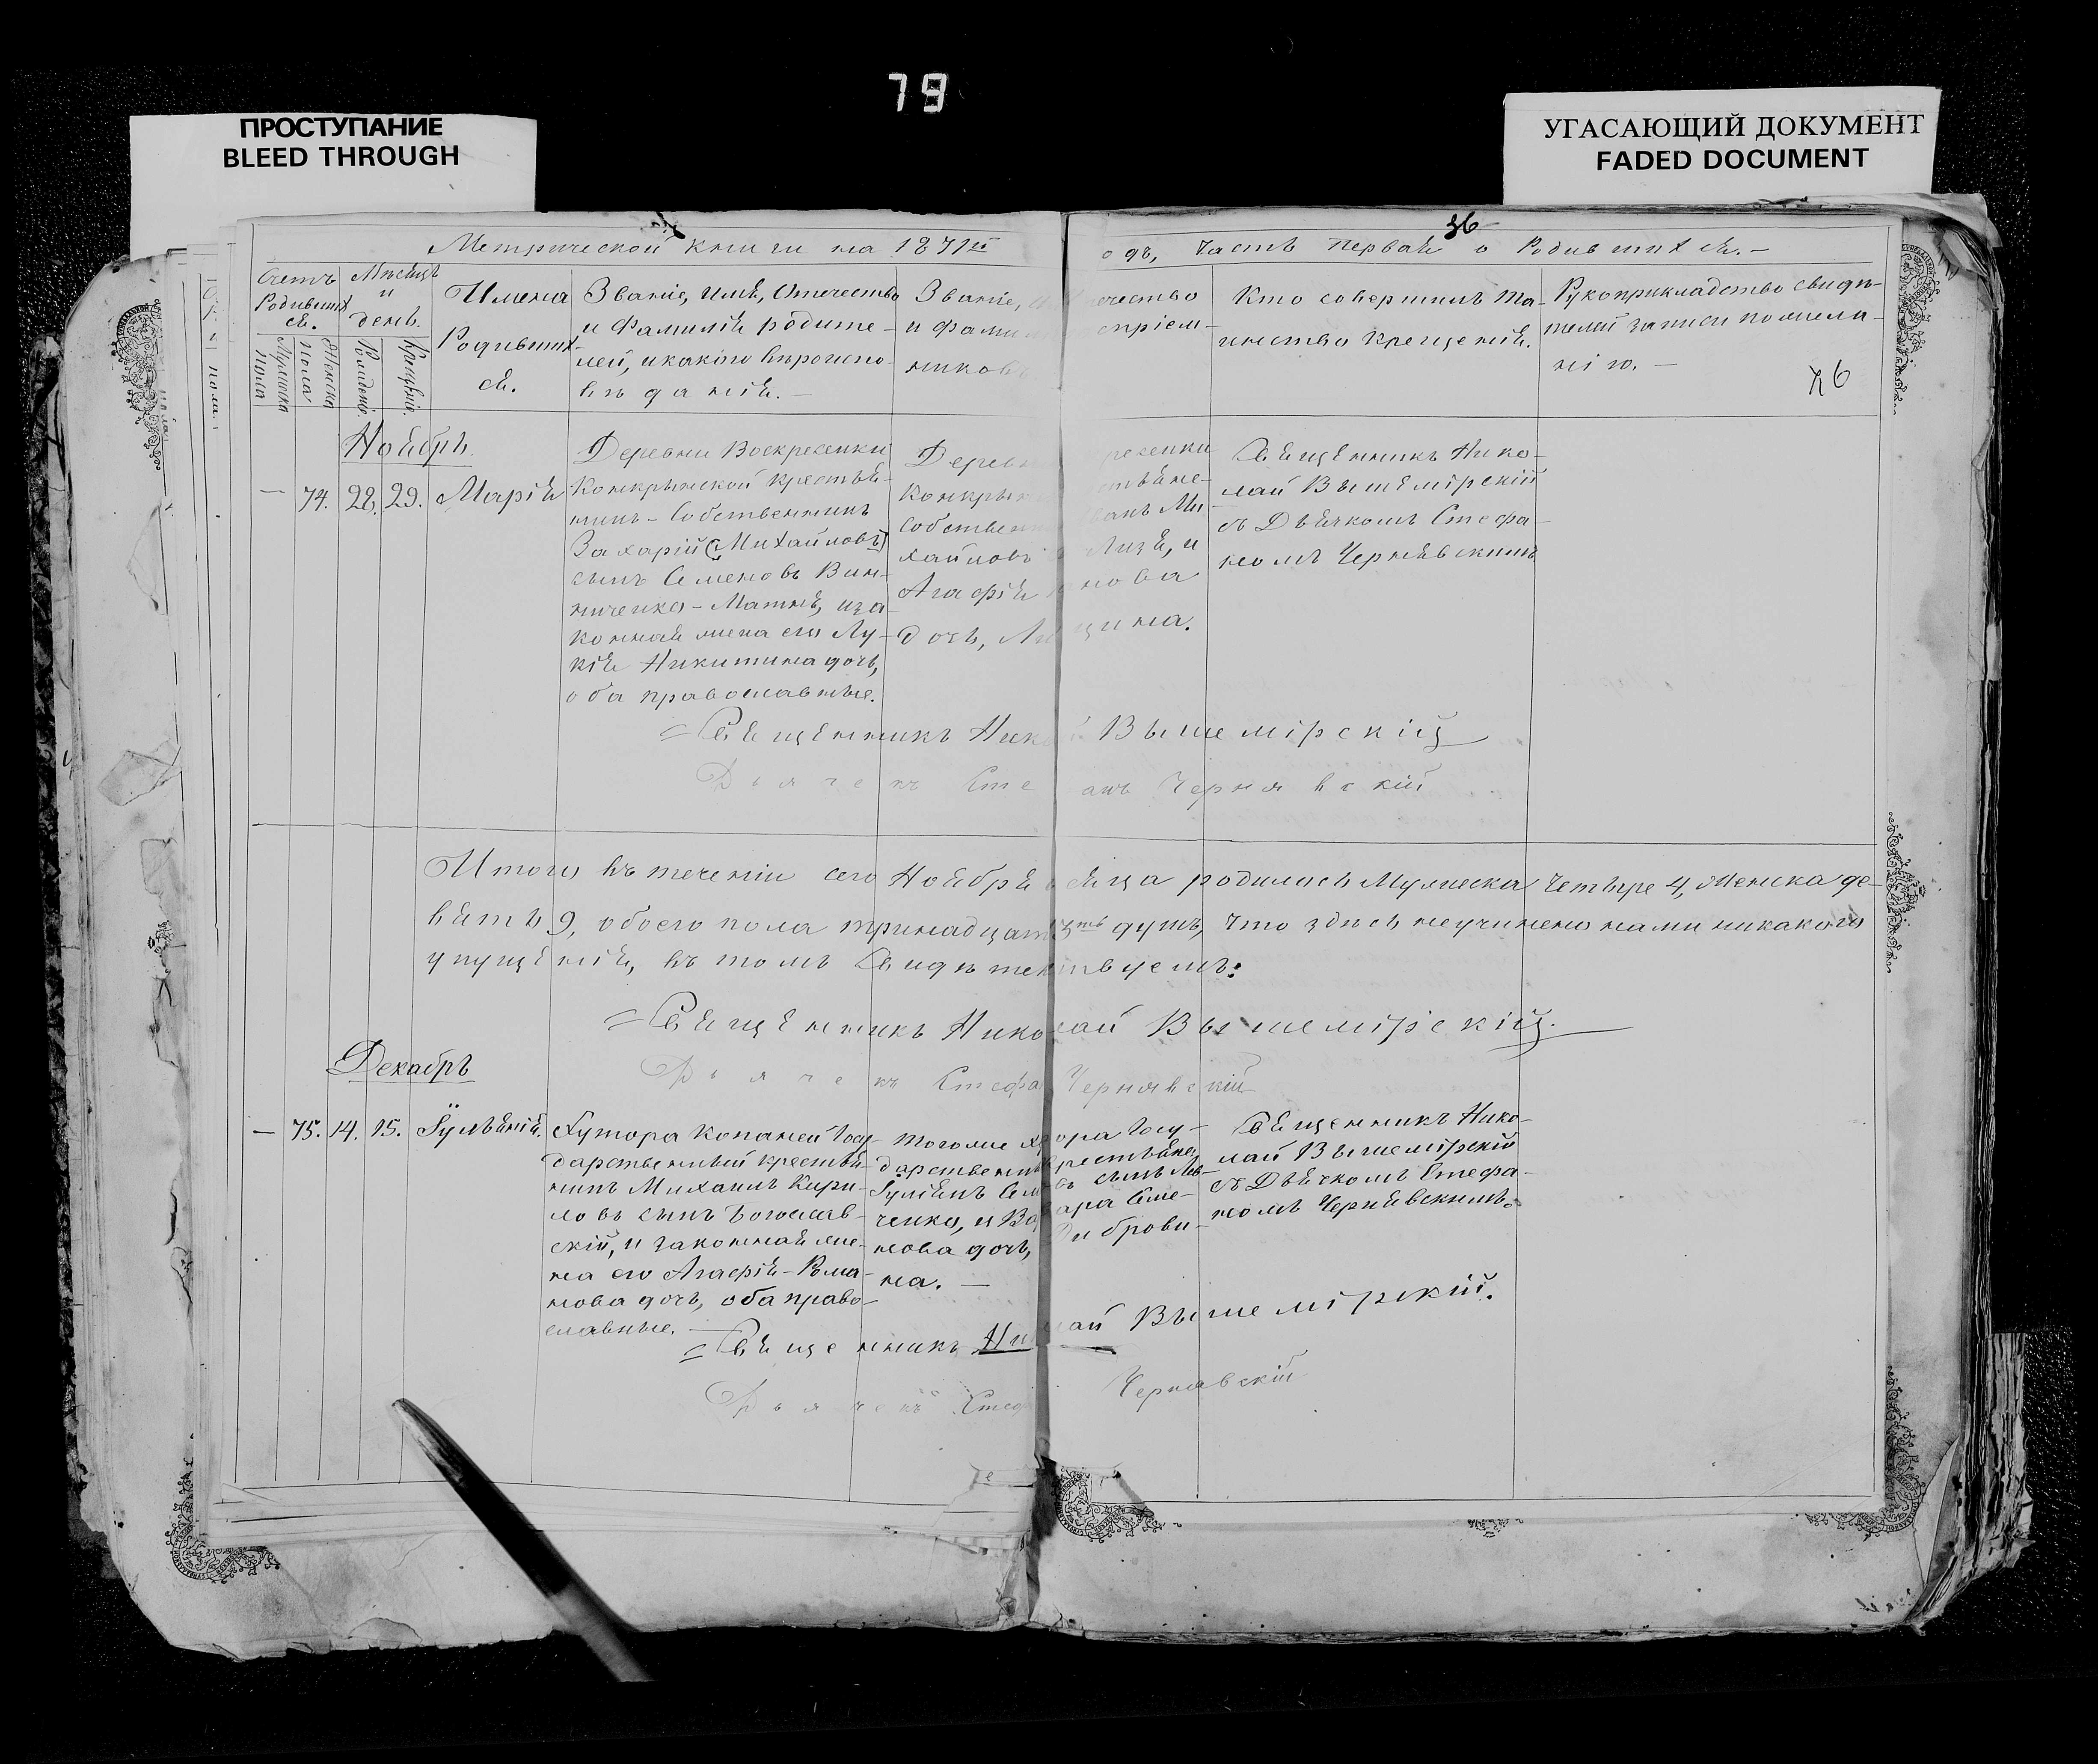 79
ПРОСТУПАНИЕ
BLEED THROUGH
УГАСАЮЩИЙ ДОКУМЕНТ
FADED DOCUMENT
36
Метрической книги на 1871й
одъ, Часть Первая о Родившихся.
Счетъ Родившихся.
Мѣсяцъ и день.
Мужеска Пола
Женска Пола
Рожденія.
Крещенія.
Имена
Родивших-
ся.
Званіе, Имя, Отечество
и Фамилія родите-
лей, и какого вѣроиспо-
вѣданія.
Званіе,
и фами
никовъ
ечество
спріем-
Кто совершилъ та-
инство Крещенія.
Рукоприкладство свидѣ-
телей записи по жела-
нію.
Ноябрь
74. 28. 29. Марія
Деревни Воскресенки
Конкрынской крестья-
нинъ-Собственникъ
Захарій (Михайловъ)
сынъ Семеновъ Вин-
ниченко-Матня, и за-
конная жена его Лу-
кія Никитина дочь,
оба православные.
Дерев
Конкрын
собствен
хайловъ
Агафія
дочь,
ресенки
стьяне-
Ми-
и
нова
цина.
Священникъ Нико-
лай Вышемірскій
съ Дьячкомъ Стефа-
номъ Чернявскимъ
Священникъ Нико Вышемірскій
Дьячекъ Сте анъ Чернявскій
Итого въ теченіи сего Ноября сяца родилось Мужеска Четыре 4, Женска де-
вять 9, обоего пола тринадцать душъ, Что здѣсь неучинено нами никакого
упущенія, въ томъ Свидѣтельствуемъ:
Священникъ Николай Вышемірскій.
Дьячекъ Стефа Чернявскій
Декабрь
75. 14. 15. Іуліанія.
Хутора Копаней Госу-
дарственный крестья-
нинъ Михаилъ Кири-
ловъ сынъ Богослав-
скій, и законная же-
на его Агафія-Рома-
нова дочь, оба право-
славные.
Того же хутора Госу-
дарственный крестьяне,
Іуліанъ Сем въ сынъ
ченко, и Варвара Семе-
нова дочь, Диброви-
на.
Священникъ Нико-
лай Вышемірскій
съ Дьячкомъ Стефа-
номъ Чернявскимъ.
Священникъ Ни лай Вышемірскій.
Дьячекъ Стеф Чернявскій